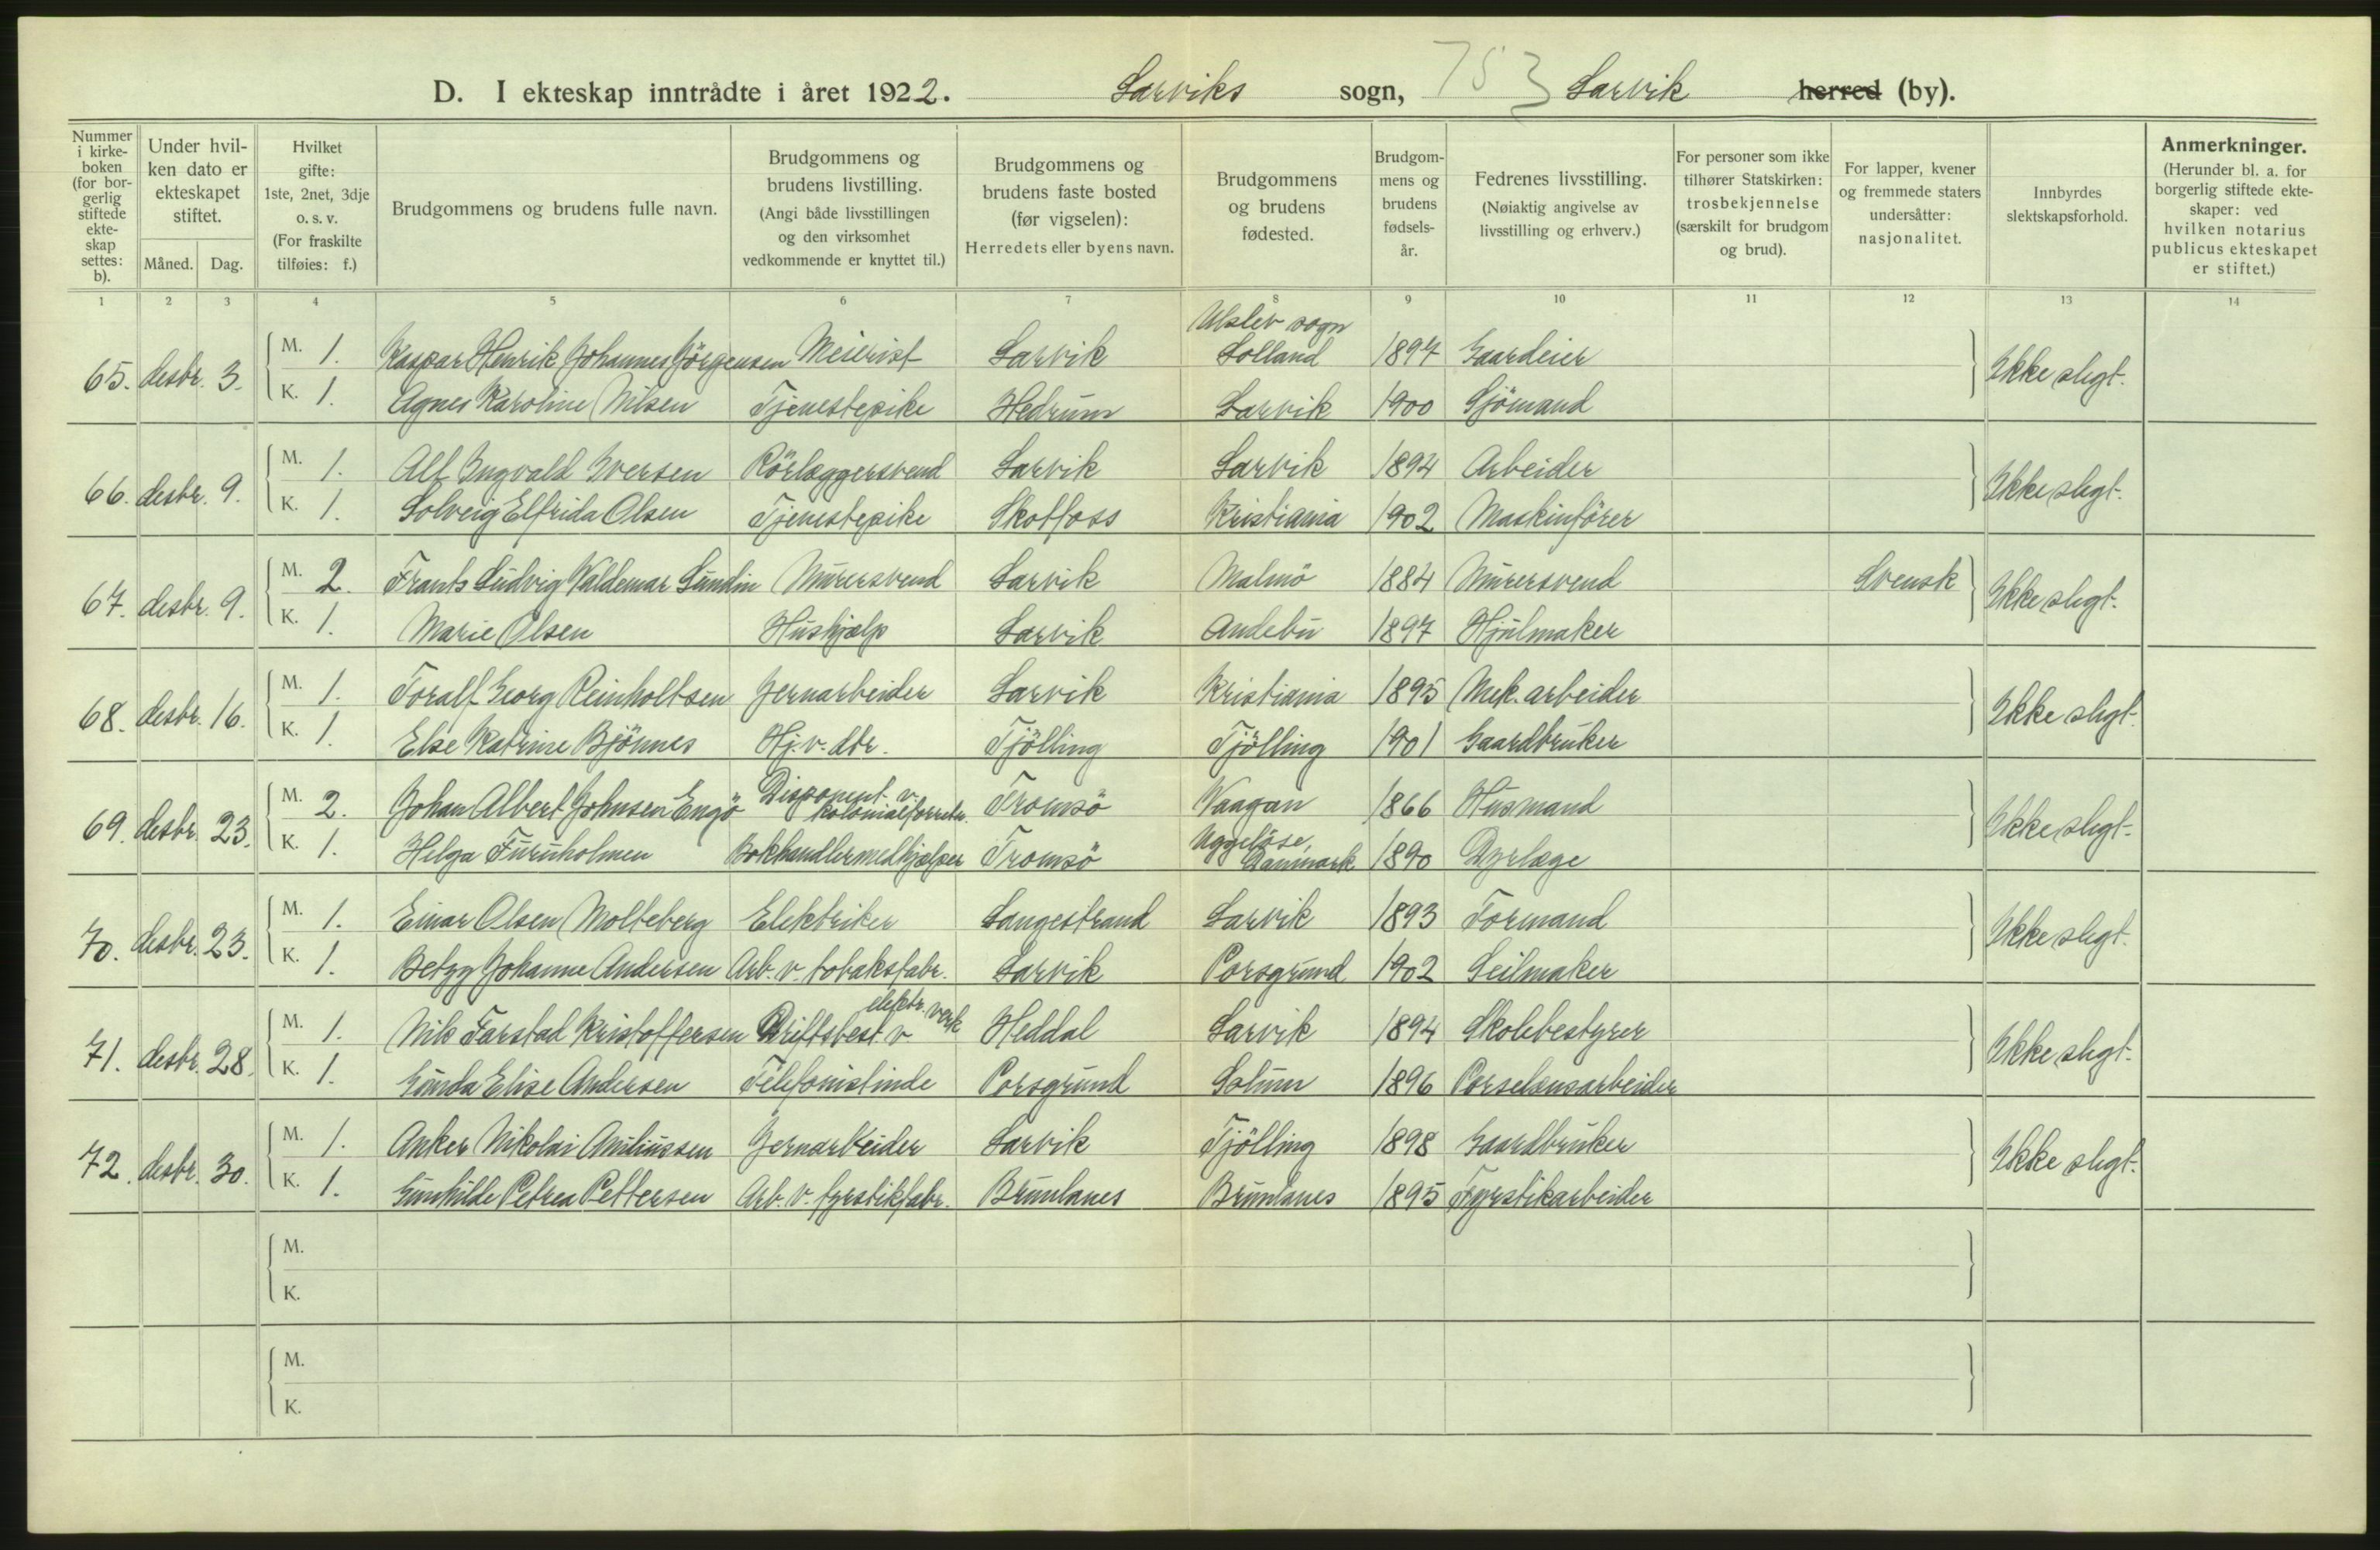 D. I ekteskap inntrådte i året 1922. Larviks sogn, 753 Larvik herred (by).
Nummer i kirke-boken (for bor-gerlig stiftede ekte-skap settes: b).
Under hvil-ken dato er ekteskapet stiftet.
Måned. Dag.
Hvilket gifte: 1ste, 2net, 3dje o. s. v. (For fraskilte tilføies: f.)
Brudgommens og brudens fulle navn.
Brudgommens og brudens livstilling. (Angi både livsstillingen og den virksomhet vedkommende er knyttet til.)
Brudgommens og brudens faste bosted (før vigselen): Herredets eller byens navn.
Brudgommens og brudens fødested.
Brudgom-mens og brudens fødsels-år.
Fedrenes livsstilling. (Nøiaktig angivelse av livsstilling og erhverv.)
For personer som ikke tilhører Statskirken: trosbekjennelse (særskilt for brudgom og brud).
For lapper, kvener og fremmede staters undersåtter: nasjonalitet.
Innbyrdes slektskapsforhold.
Anmerkninger. (Herunder bl. a. for borgerlig stiftede ekte-skaper: ved hvilken notarius publicus ekteskapet er stiftet.)
1 2 3 4 5 6 7 8 9 10 11 12 13 14
65. desbr. 3. M. 1. Kaspar Henrik Johannes Jörgensen Meierist Larvik Ulslev sogn Lolland 1897 Gaardeier Ikke slegt.
K. 1. Agnes Karoline Nilsen Tjenestepike Hedrum Larvik 1900 Sjömand
66. desbr. 9. M. 1. Alf Ingvald Iversen Rörlæggersvend Larvik Larvik 1894 Arbeider Ikke slegt.
K. 1. Solveig Elfrida Olsen Tjenestepike Skotfoss Kristiania 1902 Maskinförer
67. desbr. 9. M. 2. Frants Ludvig Valdemar Lundin Murersvend Larvik Malmö 1884 Murersvend Svensk Ikke slegt.
K. 1. Marie Olsen Hushjælp Larvik Andebu 1897 Hjulmaker
68. desbr. 16. M. 1. Toralf Georg Reinholtsen Jernarbeider Larvik Kristiania 1895 Mek. arbeider Ikke slegt.
K. 1. Else Katrine Bjönnes Hj.v. dtr. Tjölling Tjölling 1901 Gaardbruker
69. desbr. 23. M. 2. Johan Albert Johnsen Engö Disponent v. kolonialforretn. Tromsö Vaagan 1866 Husmand Ikke slegt.
K. 1. Helga Furuholmen Bokhandlermedhjælper Tromsö Uggelöse, Danmark 1890 Dyrlæge
70. desbr. 23. M. 1. Einar Olsen Molteberg Elektriker Langestrand Larvik 1893 Formand Ikke slegt.
K. 1. Betzy Johanne Andersen Arb. v. tobaksfabr. Larvik Porsgrund 1902 Seilmaker
71. desbr. 28. M. 1. Nils Farstad Kristoffersen Driftsbest. v elektr. verk Heddal Larvik 1894 Skolebestyrer Ikke slegt.
K. 1. Gunda Elise Andersen Telefonistinde Porsgrund Solum 1896 Porselænsarbeider
72. desbr. 30. M. 1. Anker Nikolai Amiliussen Jernarbeider Larvik Tjölling 1898 Gaardbruker Ikke slegt.
K. 1. Gunhilde Petrea Pettersen Arb. v. fyrstikfabr. Brunlanes Brunlanes 1895 Fyrstikarbeider
M.
K.
M.
K.